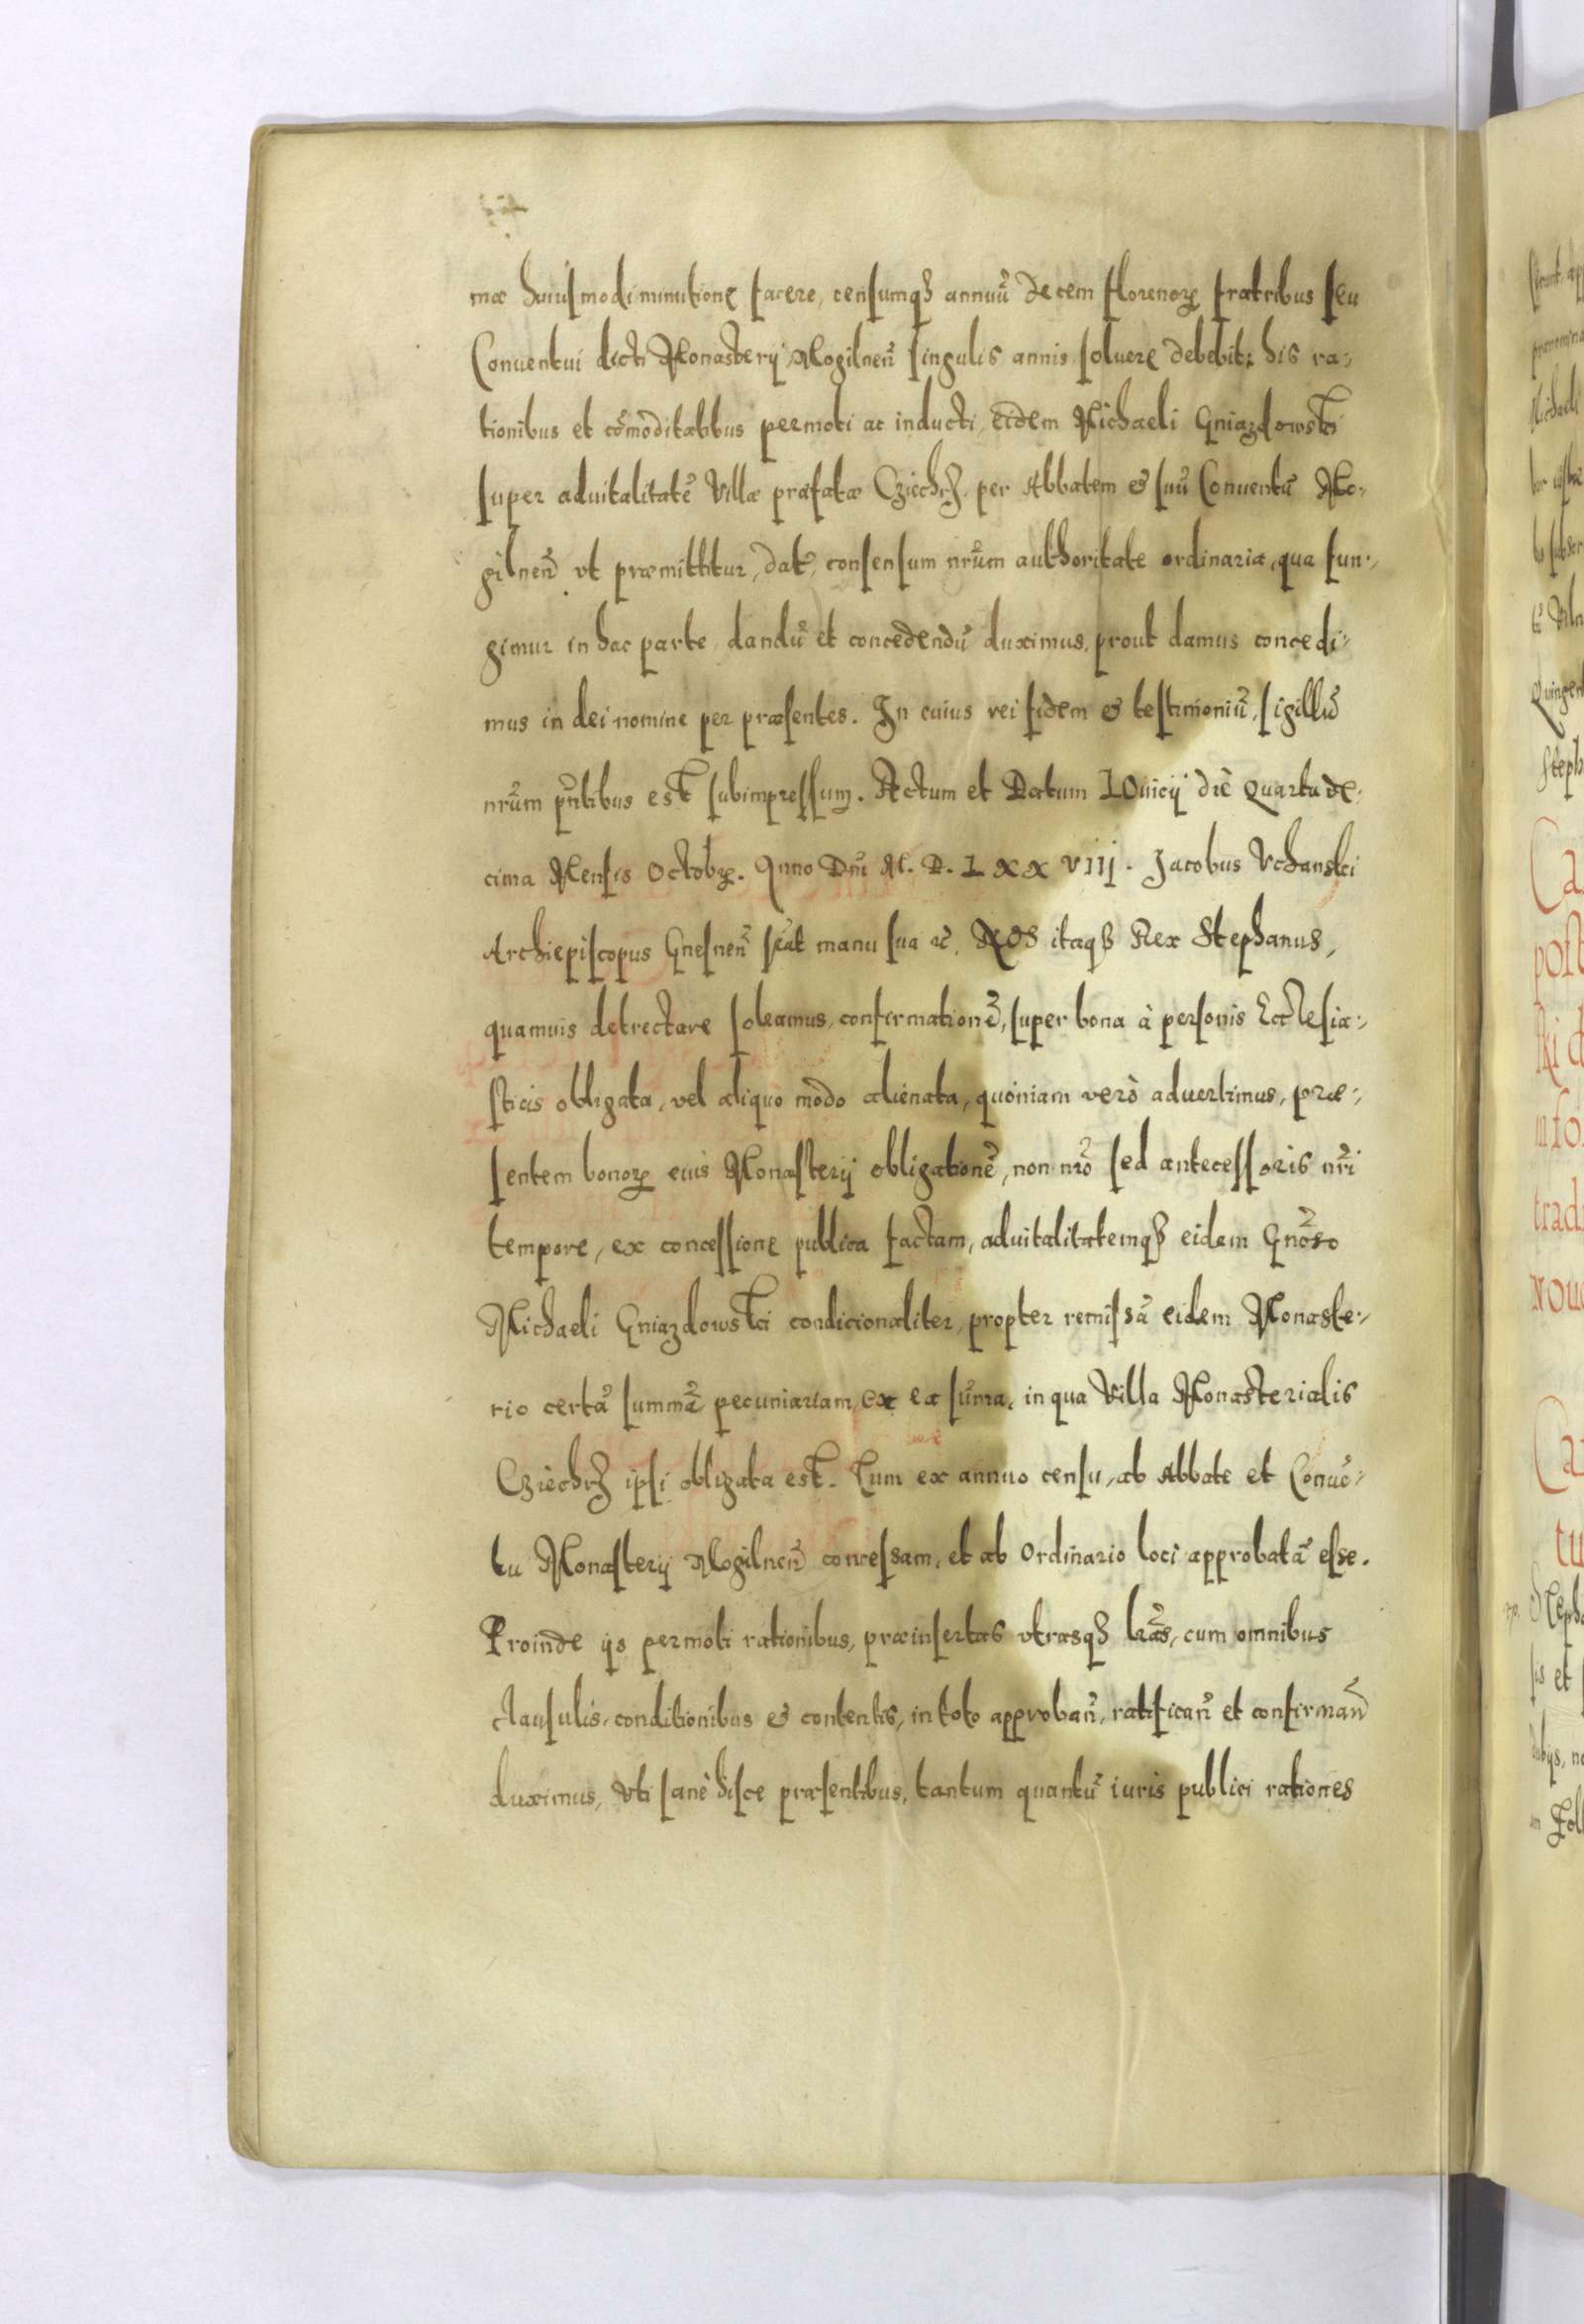 mæ huiusmodi minutione facere, censumq̃ annuũ decem florenoꝝ fratribus seu
Conuentui dicti Monasterij Mogilnen̄ singulis annis soluere debebit: his ra-
tionibus et com̃oditatibus permoti ac inducti, eidem Michaeli Gniazdowski
super aduitalitatẽ Villæ præfatæ Cziechrz, per Abbatem & suũ Conuentũ Mo-
gilnen̄ vt præmittitur, dat̃, consensum nr̃um authoritate ordinaria, qua fun-
gimur in hac parte, dandũ et concedendũ duximus, prout damus concedi-
mus in dei nomine per præsentes. In cuius rei fidem & testimoniũ, sigillũ
nr̃um pñtibus est subimpressum. Actum et Datum LOuicij die Quarta de-
cima Mensis Octobꝝ. Anno Dñi M. D. L X X VIIJ. Jacobus Vchanski
Archiepiscopus Gnesnen̄ sc̃at manu sua &c. NOS itaq̃ Rex Stephanus,
quamuis detrectare soleamus, confirmationẽ, super bona à personis Ecclesia-
sticis obligata, vel aliquo modo alienata, quoniam verò aduertimus, præ-
sentem bonoꝝ eius Monasterij obligationẽ, non nr̃o sed antecessoris nr̃i
tempore, ex concessione publica factam, aduitalitatemq̃ eidem Gnõso
Michaeli Gniazdowski condicionaliter, propter remissã eidem Monaste-
rio certã summã pecuniariam, ex ea sum̃a, in qua Villa Monasterialis
Cziechrz ipsi obligata est. Tum ex annuo censu, ab Abbate et Conuẽ-
tu Monasterij Mogilnen̄ concessam, et ab Ordinario loci approbatã esse.
Proinde ijs permoti rationibus, præinsertas vtrasq̃ lr̃as, cum omnibus
clausulis, conditionibus & contentis, in toto approban̄, ratifican̄ et confirmañd
duximus, Vti sanè hisce præsentibus, tantum quantũ iuris publici rationes